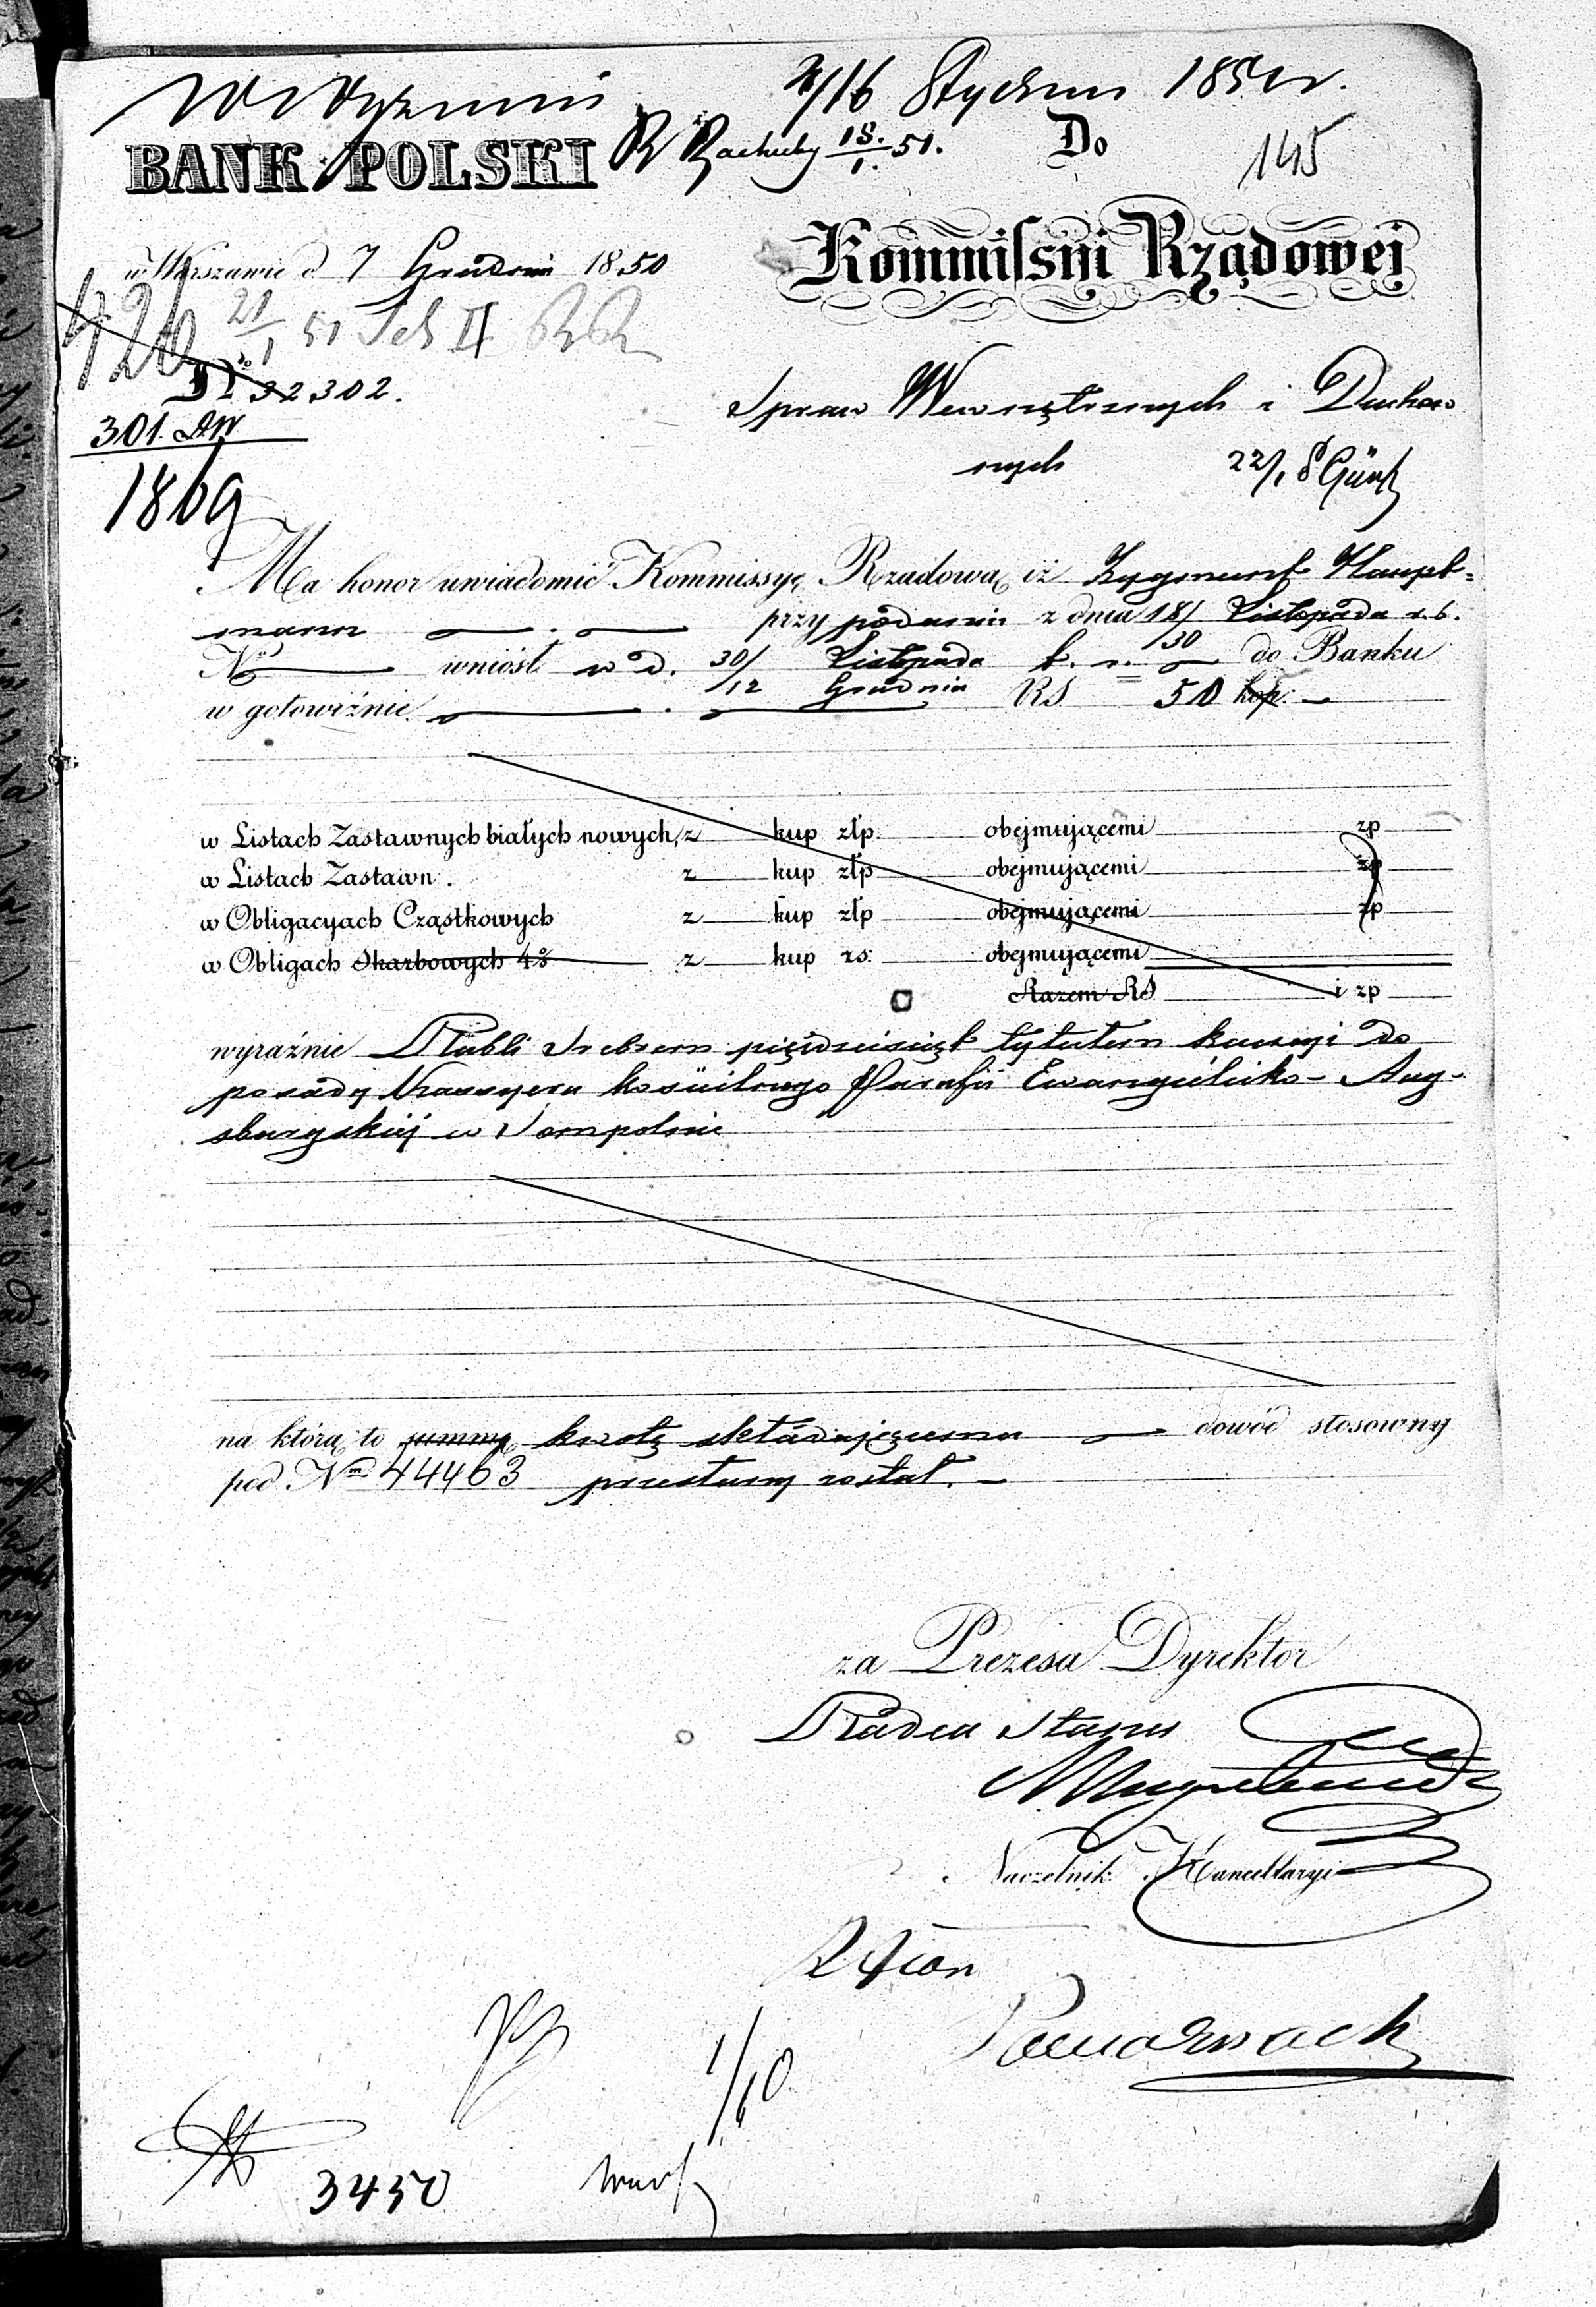 4/16 Stycznia 1851 r.
BANK POLSKI
R Rachuby 18./1. 51.
Do
145
Kommissyi Rządowej
w Warszawie d 7 Grudnia 1850
426 21/1 51 Sek II
No 32302.
Spraw Wewnętrznych i Duchow
301. DW
nych
22/1
1869
Ma honor uwiadomić Kommissyę Rządową iż Zygmunt Haupt=
mann przy podaniu z dnia 18/30 Listopada r. b.
No wniósł w d. 30/12 Listopada/Grudnia b. r. do Banku
w gotowiźnie RS 50 kop. —
w Listach Zastawnych białych nowych, z kup złp. obejmującemi zp
w Listach Zastawn. z kup złp obejmującemi zp
w Obligacyach Cząstkowych z kup złp obejmującemi zp
w Obligach Skarbowych 4% z kup rs: obejmującemi
Razem RS i zp
wyraźnie Rubli Srebrem pięćdziesiąt tytułem kaucyi do
posady Kassyera kościelnego Parafii Ewangielicko-Aug-
sburgskiéj w Sompolnie
na którą to summę kwotę składającemu dowód stosowny
pod Nm 44463 przesłany został. —
za Prezesa Dyrektor
Radca Stanu
Naczelnik Kancellaryi
1/10
3450